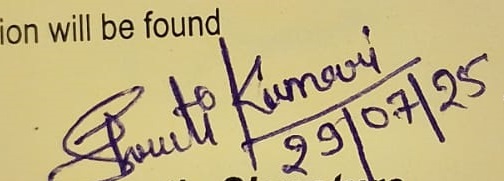 ion will be found
Kumari
29/07/25